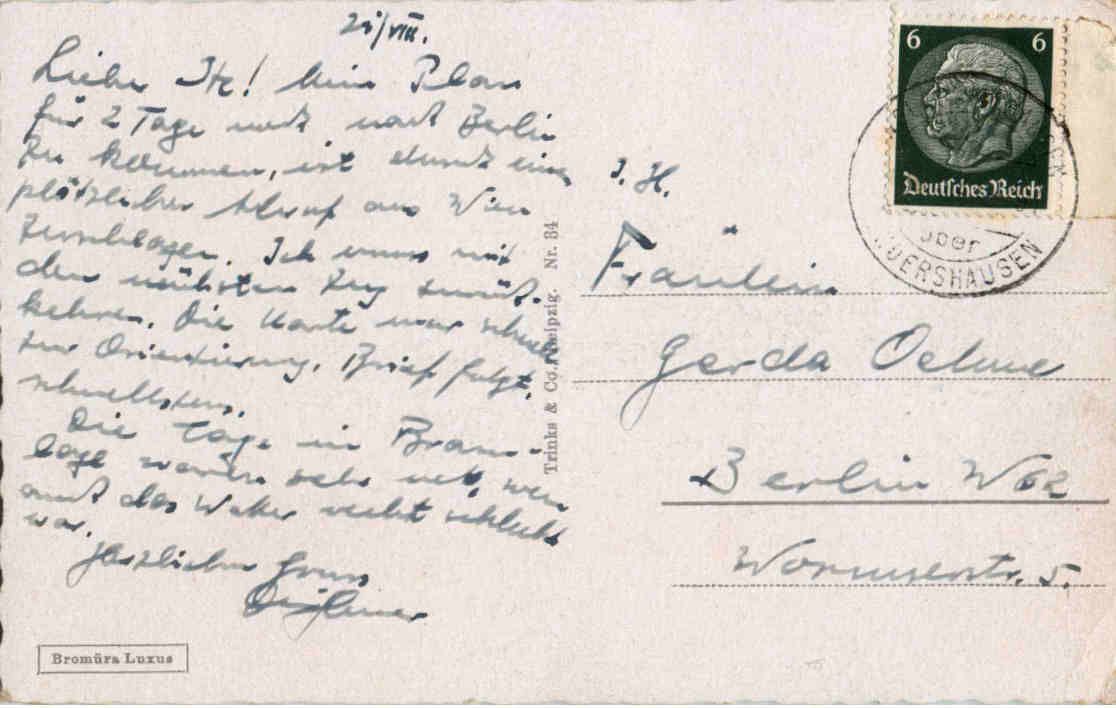 21/VIII.
Liebe Ite! Mein Plan
für 2 Tage noch nach Berlin
zu kommen, ist durch einen
plötzlichen Abruf aus Wien
zerschlagen. Ich muss mit
dem nächsten Zug zurück-
kehren. Die Karte nur schnell
zur Orientierung. Brief folgt
schnellstens.
Die Tage in Braun-
lage waren sehr nett, wenn
auch das Wetter recht schlecht
war.
Herzlichen Gruss
Bromüra Luxus
Trinks & Co., Leipzig. Nr. 84
6 6
Deutsches Reich
über
J. H.
Fräulein
Gerda Oehme
Berlin W62
Wormserstr. 5.